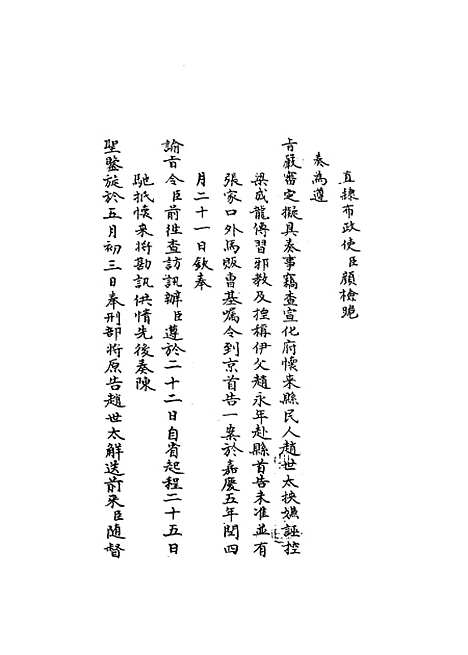 直隸布政使臣顏檢跪
奏為遵
旨嚴審定擬具奏事竊查宣化府懷來縣民人趙世太挾嫌誣控
梁成龍傳習邪教及捏稱伊父趙永年赴縣首告未准並有
張家口外馬販曹基囑令到京首告一案於嘉慶五年閏四
月二十一日欽奉
諭旨令臣前往查訪訊辦臣遵於二十二日自省起程二十五日
馳抵懷來將勘訊供情先後奏陳
聖鑒旋於五月初三日奉刑部將原告趙世太解送前來臣隨督